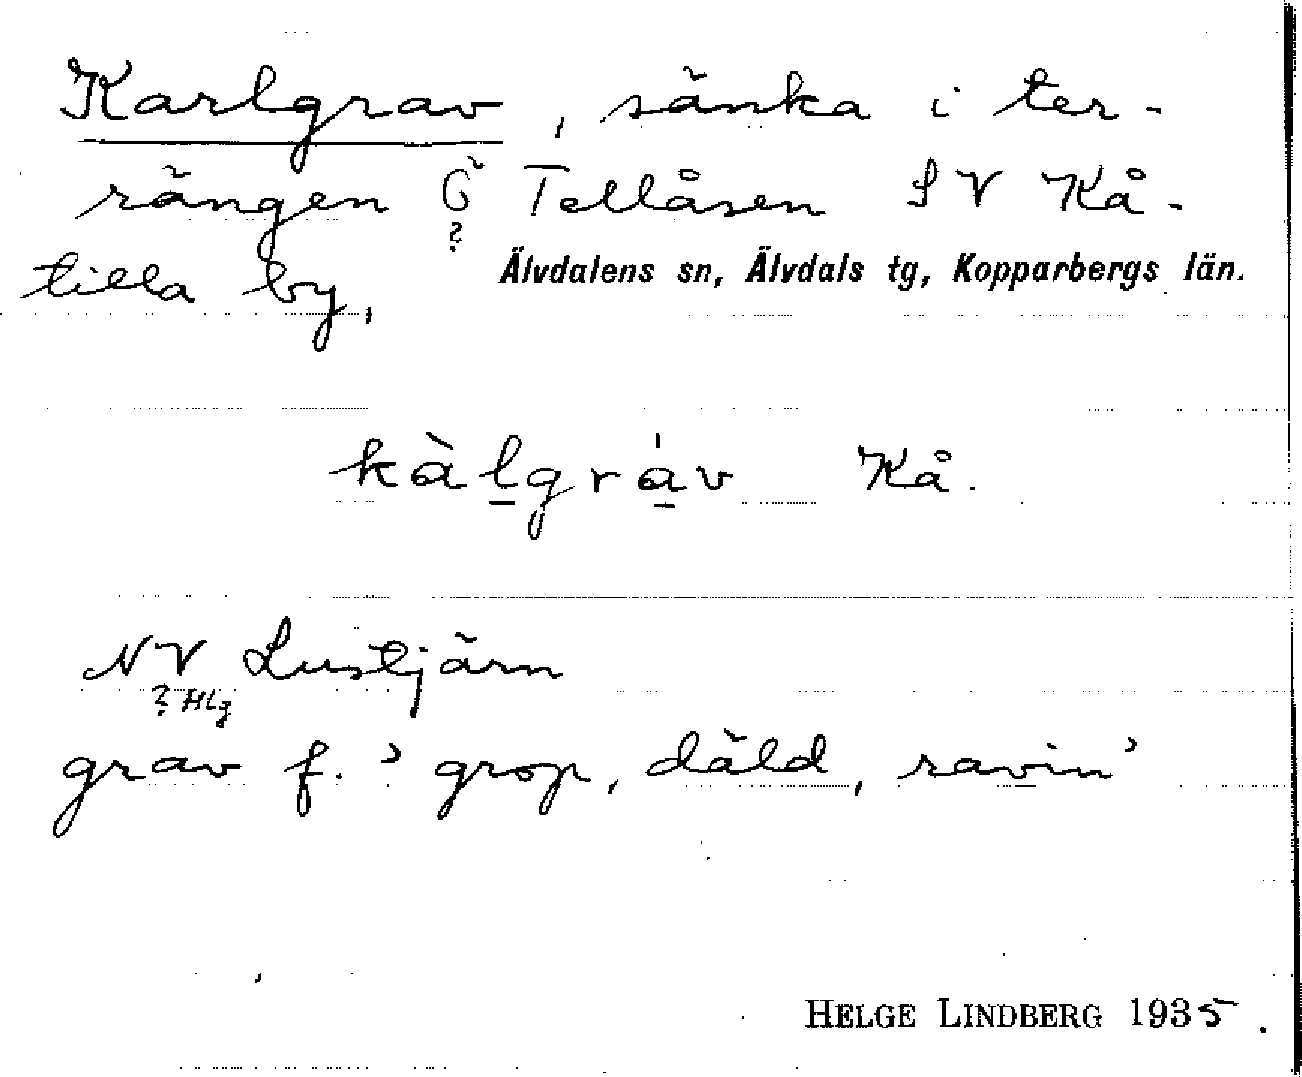 Karlgrav, sänka i ter-
rängen Ö Tellåsen SV Kå-
?
tilla by, Älvdalens sn, Älvdals tg, Kopparbergs län.
kàl̲grá̲v Kå.
NV Lustjärn
? HLg
grav f. ’grop, däld, ravin’
HELGE LINDBERG 1935.